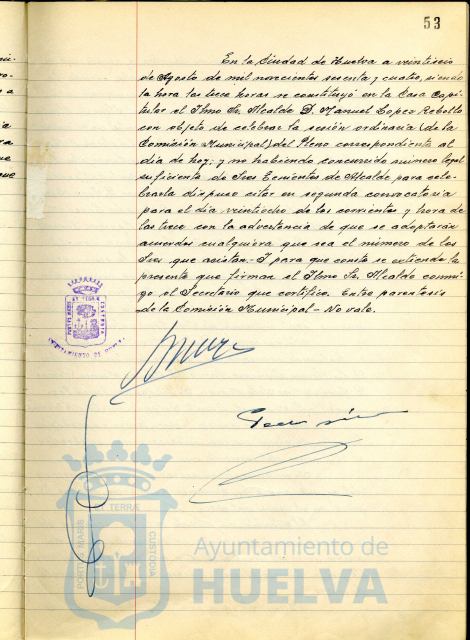 53
En la Ciudad de Huelva a veintiseis
de Agosto de mil novecientos sesenta y cuatro, siendo
la hora las trece horas se constituyó en la Casa Capi-
tular el Ilmo Sr. Alcalde D. Manuel Lopez Rebollo
con objeto de celebrar la sesión ordinaria (de la
Comisión Municipal) del Pleno correspondiente al
día de hoy; y no habiendo concurrido número legal
suficiente de Sres Tenientes de Alcalde para cele-
brarla dispuso citar en segunda convocatoria
para el día veintiocho de los corrientes y hora de
las trece con la advertencia de que se adoptarán
acuerdos cualquiera que sea el número de los
Sres que asistan. Y para que conste se extiende la
presente que firman el Ilmo Sr. Alcalde conmi-
go el Secretario que certifico. Entre parentesis
de la Comisión Municipal - No vale.
AYUNTAMIENTO DE HUELVA
PORTUS MARIS ET TERRAE CUSTODIA
Ayuntamiento de
HUELVA